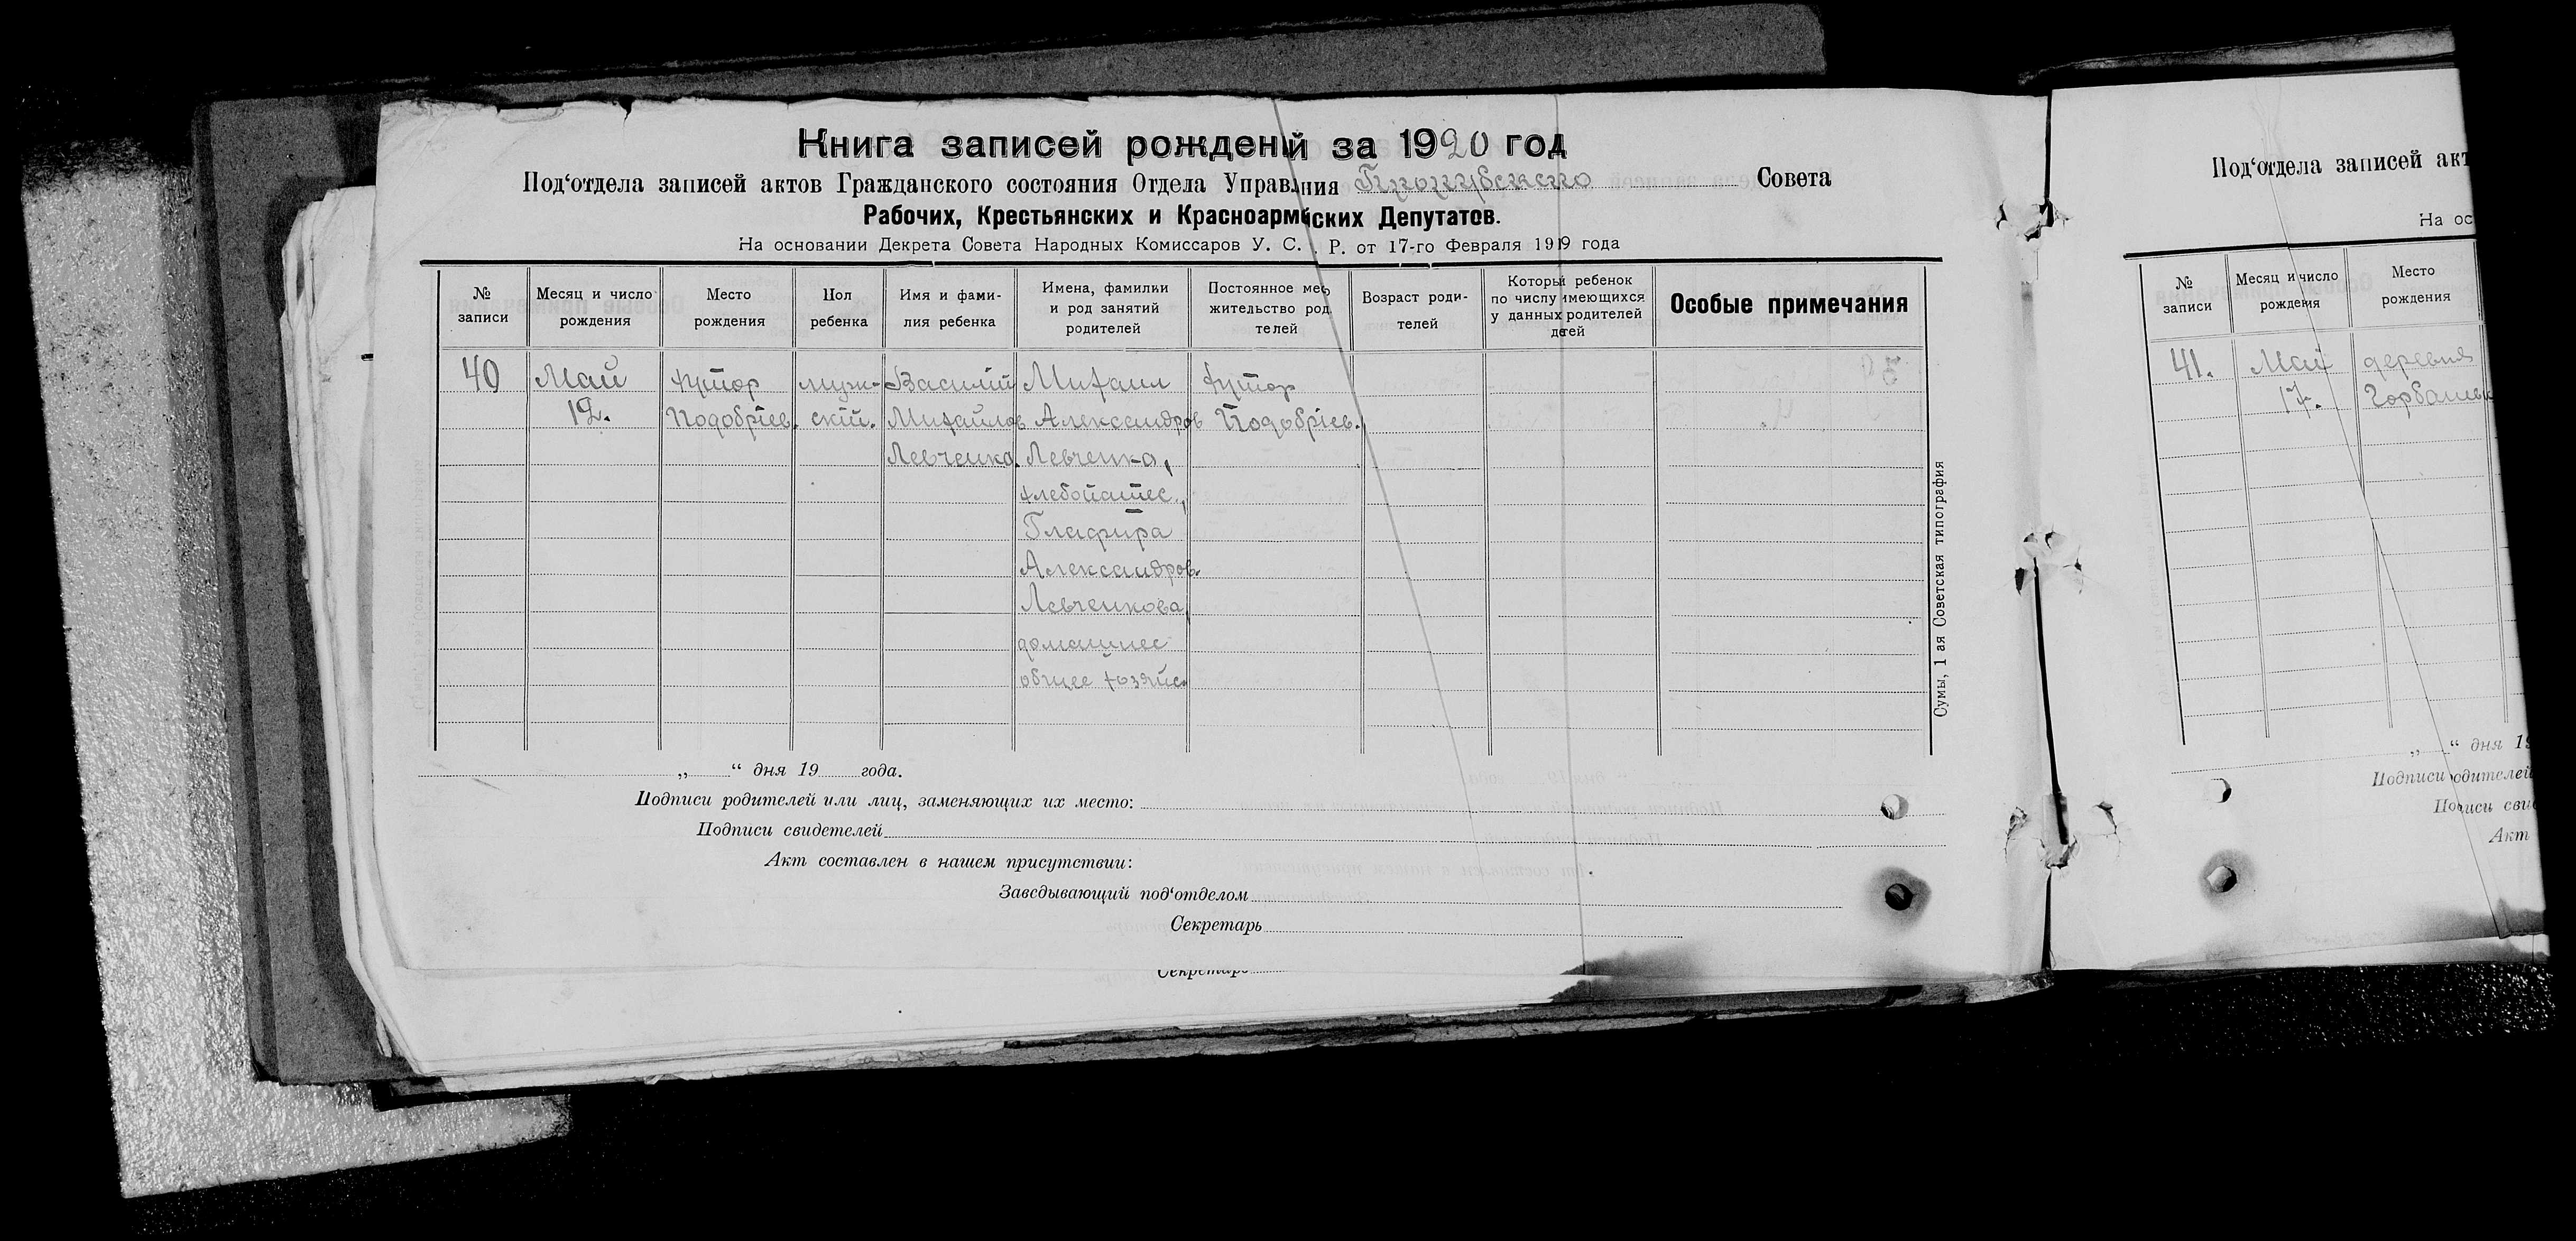 Книга записей рождений за 1920 год
Под‘отдела записей актов Гражданского состояния Отдела Управления Совета
Рабочих, Крестьянских и Красноармейских Депутатов.
На основании Декрета Совета Народных Комиссаров У. С. Р. от 17-го Февраля 1919 года
№ записи
Месяц и число рождения
Место рождения
Пол ребенка
Имя и фами-
лия ребенка
Имена, фамилии
и род занятий
родителей
Постоянное мес
жительство род
телей
Возраст роди-
телей
Который ребенок
по числу имеющихся
у данных родителей
детей
Особые примечания
40 Май хутор муж- Василий Михаил хутор
12. Подобріев. скій. Михайлов Александров Подобріев.
Левченко. Левченко,
хлебопашес.,
Глафира
Александров.
Левченкова,
домашнее
общее хозяйс.
„ “ дня 19 года.
Подписи родителей или лиц, заменяющих их место:
Подписи свидетелей
Акт составлен в нашем присутствии:
Заведывающий под‘отделом
Секретарь
Секретарь
Сумы, 1 ая Советская типография
Под‘отдела записей акт
На ос
№ записи
Месяц и число рождения
Место рождения
41. Май деревня
17.
„ “ дня 19
Подписи родителей
Подписи сви
Акт